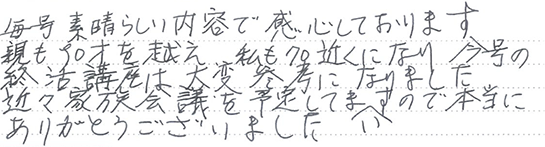 毎号素晴らしい内容で感心しております
親も90才を越え 私も70近くになり 今号の
終活講座は大変参考になりました
近々家族会議を予定してますので本当に
ありがとうございました